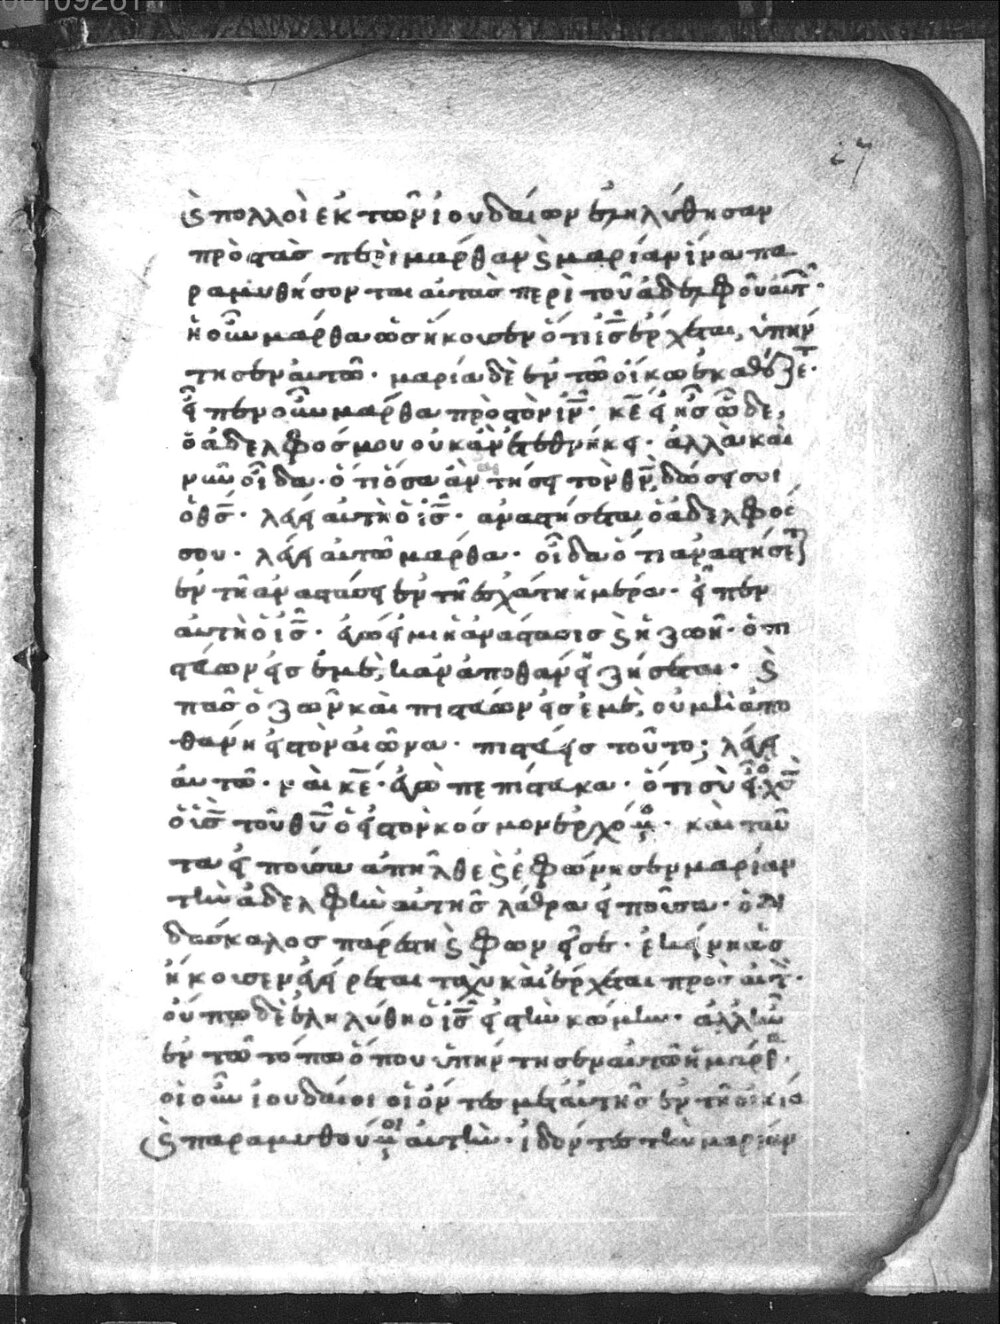 27
ϗ πολλοὶ ἐκ τῶν ἰουδαίων ἐληλύθησαν
πρὸς τὰς περὶ μάρθαν ϗ μαρίαν ἵνα πα
ραμυθήσονται αὐτὰς περὶ τοῦ ἀδελφοῦ αὐτ̑·
ἡ οὖν μάρθα ὡς ἤκουσεν ὅτι ἰς̅ ἔρχεται, ὑπήν
τησεν αὐτῶ· μαρία δὲ ἐν τῶ οἴκω ἐκαθέζετ·
εἶπεν οὖν μάρθα πρὸς τὸν ἰν̅· κε̅ εἰ ἦς ὧδε,
ὁ ἀδελφός μου οὐκ ἂν ἐτεθνήκει· ἀλλὰ καὶ
νῦν οἶδα· ὅτι ὅσα ἂν αἰτήση τὸν θν̅, δώσει σοι
ὁ θς̅· λέγει αὐτῆ ὁ ἰς̅· ἀναστήσεται ὁ ἀδελφός
σου· λέγει αὐτῶ μάρθα· οἶδα ὅτι ἀναστήσετ
ἐν τῆ ἀναστάσει ἐν τῆ ἐσχάτη ἡμέρα· εἶπεν
αὐτῆ ὁ ἰς̅· ἐγώ εἰμι ἡ ἀνάστασις ϗ ἡ ζωή· ὁ πι
στεύων εἰς ἐμὲ, κἂν ἀποθάνη ζήσεται· ϗ
πᾶς ὁ ζῶν καὶ πιστεύων εἰς ἐμὲ, οὐ μὴ ἀπο
θάνη εἰς τὸν αἰῶνα· πιστεύεις τοῦτο; λέγει
αὐτῶ· ναὶ κε̅· ἐγὼ πεπίστευκα· ὅτι σὺ εἶ ὁ χς̅
ὁ υἱς̅ τοῦ θυ̅ ὁ εἰς τὸν κόσμον ἐρχόμ̑· καὶ ταῦ
τα εἰποῦσα ἀπῆλθε ϗ ἐφώνησεν μαρίαν
τὴν ἀδελφὴν αὐτῆς λάθρα εἰποῦσα· ὁ δι
δάσκαλος πάρεστι ϗ φωνεῖ σε· ἐκείνη ὡς
ἤκουσεν ἐγείρεται ταχὺ καὶ ἔρχεται πρὸς αὐτ̀·
οὔπω δὲ ἐληλύθει ὁ ἰς̅ εἰς τὴν κώμην· ἀλλ ἦν
ἐν τῶ τόπω ὅπου ὑπήντησεν αὐτῶ ἡ μάρθ·
οἱ οὖν ἰουδαῖοι οἱ ὄντες μετ αὐτῆς ἐν τῆ οἰκία
ϗ παραμυθούμ̑οι αὐτὴν· ἰδόντες τὴν μαρίαν